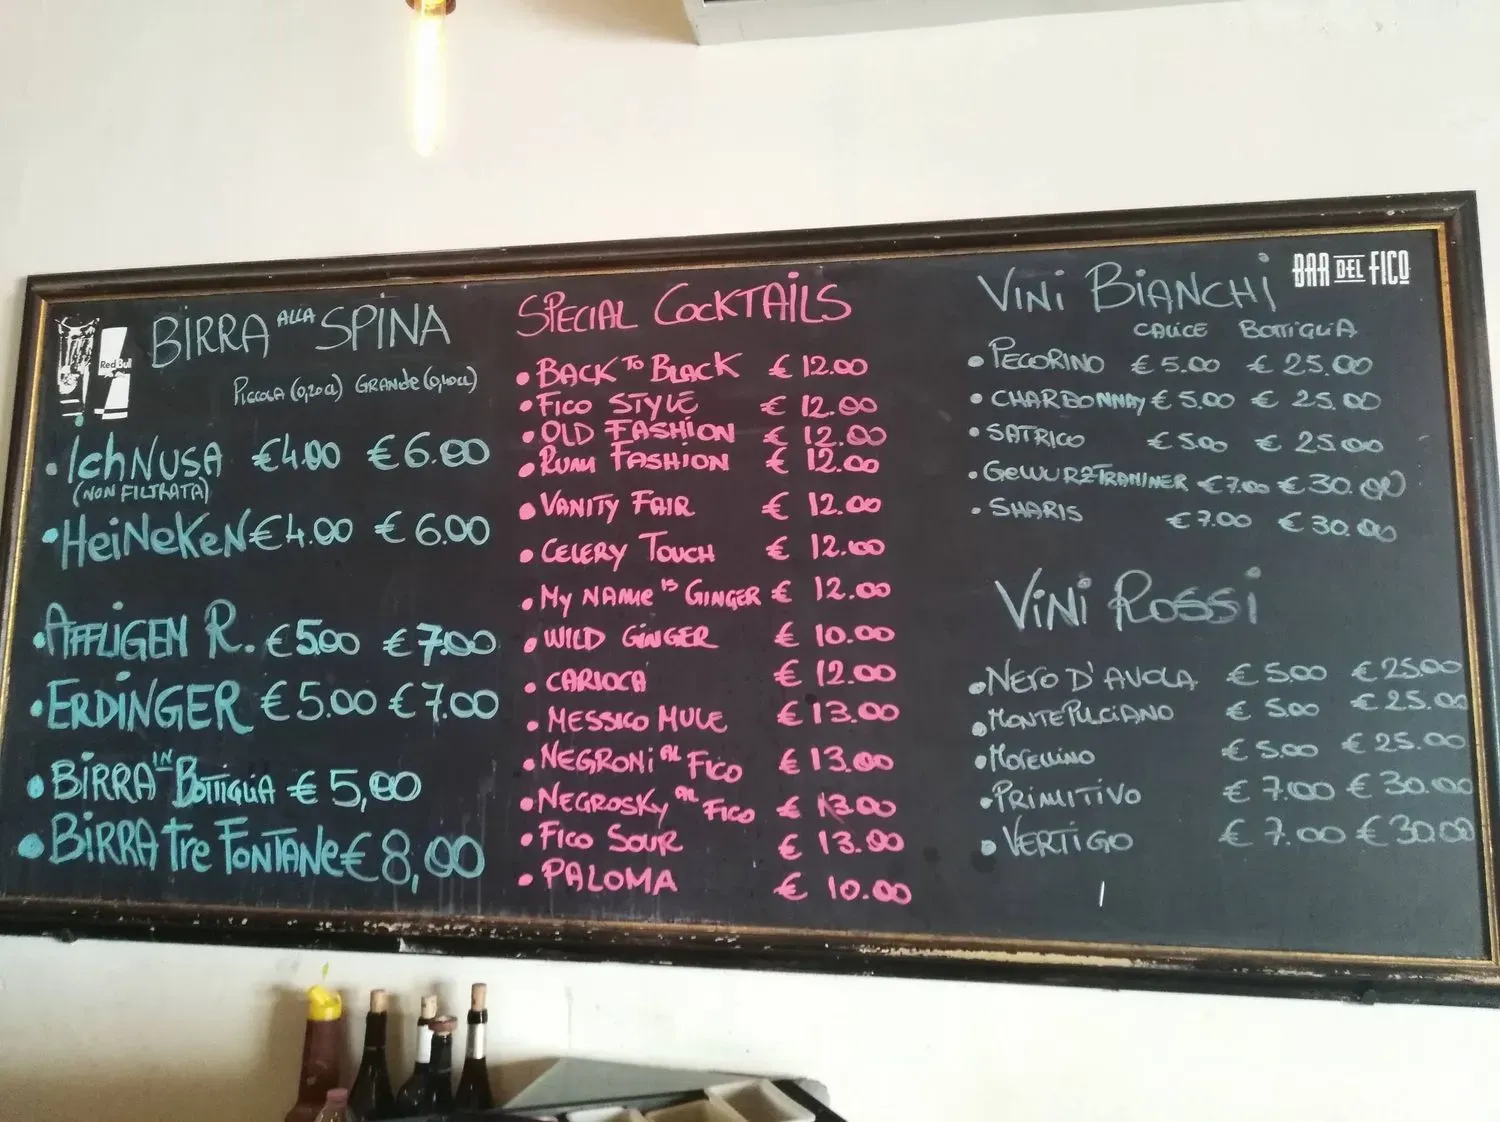 Red Bull
BIRRA ALLA SPINA
PICCOLA (0,20CL) GRANDE (0,40CL)
• IchNUSA €4.00 €6.00
(NON FILTRATA)
• HeiNeKeN €4.00 €6.00
• AFFLIGEM R. €5.00 €7.00
• ERDINGER €5.00 €7.00
• BIRRA IN BOTTIGLIA €5,00
• BIRRA Tre FONTANe €8,00
SPECIAL COCKTAILS
• BACK TO BLACK €12.00
• FICO STYLE €12.00
• OLD FASHION €12.00
• RUM FASHION €12.00
• VANITY FAIR €12.00
• CELERY TOUCH €12.00
• MY NAME IS GINGER €12.00
• WILD GINGER €10.00
• CARIOCA €12.00
• MESSICO MULE €13.00
• NEGRONI AL FICO €13.00
• NEGROSKY AL FICO €13.00
• FICO SOUR €13.00
• PALOMA €10.00
BAR DEL FICO
VINI BIANCHI
CALICE BOTTIGLIA
• PECORINO €5.00 €25.00
• CHARDONNAY €5.00 €25.00
• SATRICO €5.00 €25.00
• GEWURZTRAMINER €7.00 €30.00
• SHARIS €7.00 €30.00
VINI ROSSI
• NERO D'AVOLA €5.00 €25.00
• MONTEPULCIANO €5.00 €25.00
• MORELLINO €5.00 €25.00
• PRIMITIVO €7.00 €30.00
• VERTIGO €7.00 €30.00